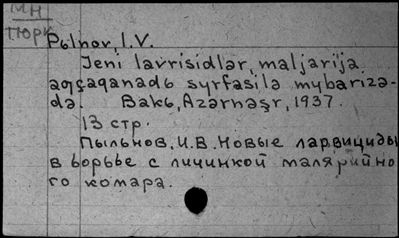 МН
ТЮРК
Pьlnov, I.V.
Jeni lavrisidlər, maljarija
aqçaqanadь syrfasilə mybarizə-
də. Bakь, Azərnəşr, 1937.
13 стр.
Пыльнов, И.В. Новые ларвициды
в борьбе с личинкой малярийно
го комара.